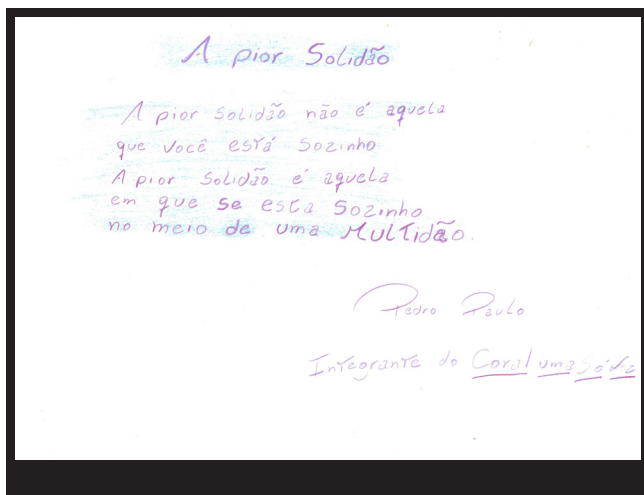 A pior Solidão
A pior Solidão não é aquela
que você está Sozinho
A pior Solidão é aquela
em que se esta Sozinho
no meio de uma Multidão.
Pedro Paulo
Integrante do Coral uma Só